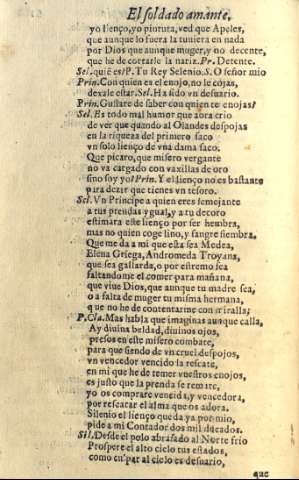 El soldado amante.
yo lienço, yo pintura, ved que Apeles,
que aunque lo fuera la tuuiera en nada
por Dios que aunque muger, y no decente,
que he de cortarle la nariz. Pr. Detente.
Sel. quiẽ es? P. Tu Rey Selenio. S. O señor mio
Prin. Con quien es el enojo, no le cojas,
dexale estar. Sel. Ha sido vn desuario.
Prin. Gustare de saber con quien te enojas?
Sel. Es todo mal humor que aora crio
de ver que quando al Olandes despojas
en la riqueza del primero saco
vn solo lienço de vna dama saco.
Que picaro, que misero vergante
no va cargado con vaxillas de oro
sino soy yo? Prin. Y el lienço no es bastante
para dezir que tienes vn tesoro.
Sel. Vn Principe a quien eres semejante
a tus prendas ygual, y a tu decoro
estimara este lienço por ser hembra,
mas no quien coge lino, y sangre siembra.
Que me da a mi que esta sea Medea,
Elena Griega, Andromeda Troyana,
que sea gallarda, o por estremo fea
faltandome el comer para mañana,
que viue Dios, que aunque tu madre sea,
o a falta de muger tu misma hermana,
que no he de contentarme con miralla;
P. Cla. Mas habla que imaginas aunque calla,
Ay diuina beldad, diuinos ojos,
presos en este misero combate,
para que siendo de vn cruel despojos,
vn vencedor vencido la rescate,
en mi que he de temer vuestros enojos,
es justo que la prenda se remate,
yo os comprare vencida, y vencedora,
por rescatar el alma que os adora.
Silenio el lienço queda ya por mio,
pide a mi Contador dos mil ducados.
Sil. Desde el polo abrasado al Norte frio
Prospere el alto cielo tus estados,
como cu par al cielo es desuario,
que